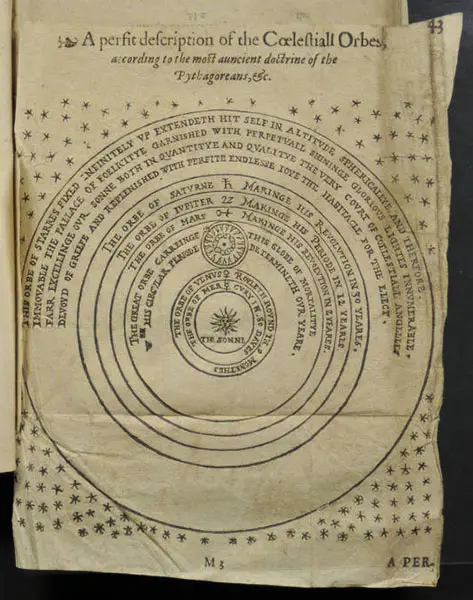 43
A perfit description of the Cœlestiall Orbes,
according to the most auncient doctrine of the
Pythagoreans, &c.
THIS ORBE OF STARRES FIXED INFINITELY VP EXTENDETH HIT SELF IN ALTITVDE SPHERICALLYE AND THEREFORE
IMMOVABLE THE PALLACE OF FOELICITYE GARNISHED WITH PERPETVALL SHININGE GLORIOVS LIGHTES INNVMERABLE.
FARR EXCELLINGE OVR SONNE BOTH IN QVANTITYE AND QVALITYE THE VERY COVRT OF COELESTIALL ANGELLES
DEVOYD OF GREEFE AND REPLENISHED WITH PERFITE ENDLESSE IOYE THE HABITACLE FOR THE ELECT.
THE ORBE OF SATVRNE ♄ MAKINGE HIS REVOLVTION IN 30 YEARES.
THE ORBE OF IVPITER ♃ MAKINGE HIS PERIODE IN 12 YEARES
THE ORBE OF MARS ♂ MAKINGE HIS REVOLVTION IN 2 YEARES.
THE GREAT ORBE CARREINGE THIS GLOBE OF MORTALITYE
HIS CIRCVLAR PERIODE DETERMINETH OVR YEARE.
THE ORBE OF VENVS ♀ ROVLETH ROVND IN 9 MONETHES
THE ORBE OF MER☿CVRY IN 80 DAYES
THE SONNE
M3
A PER-